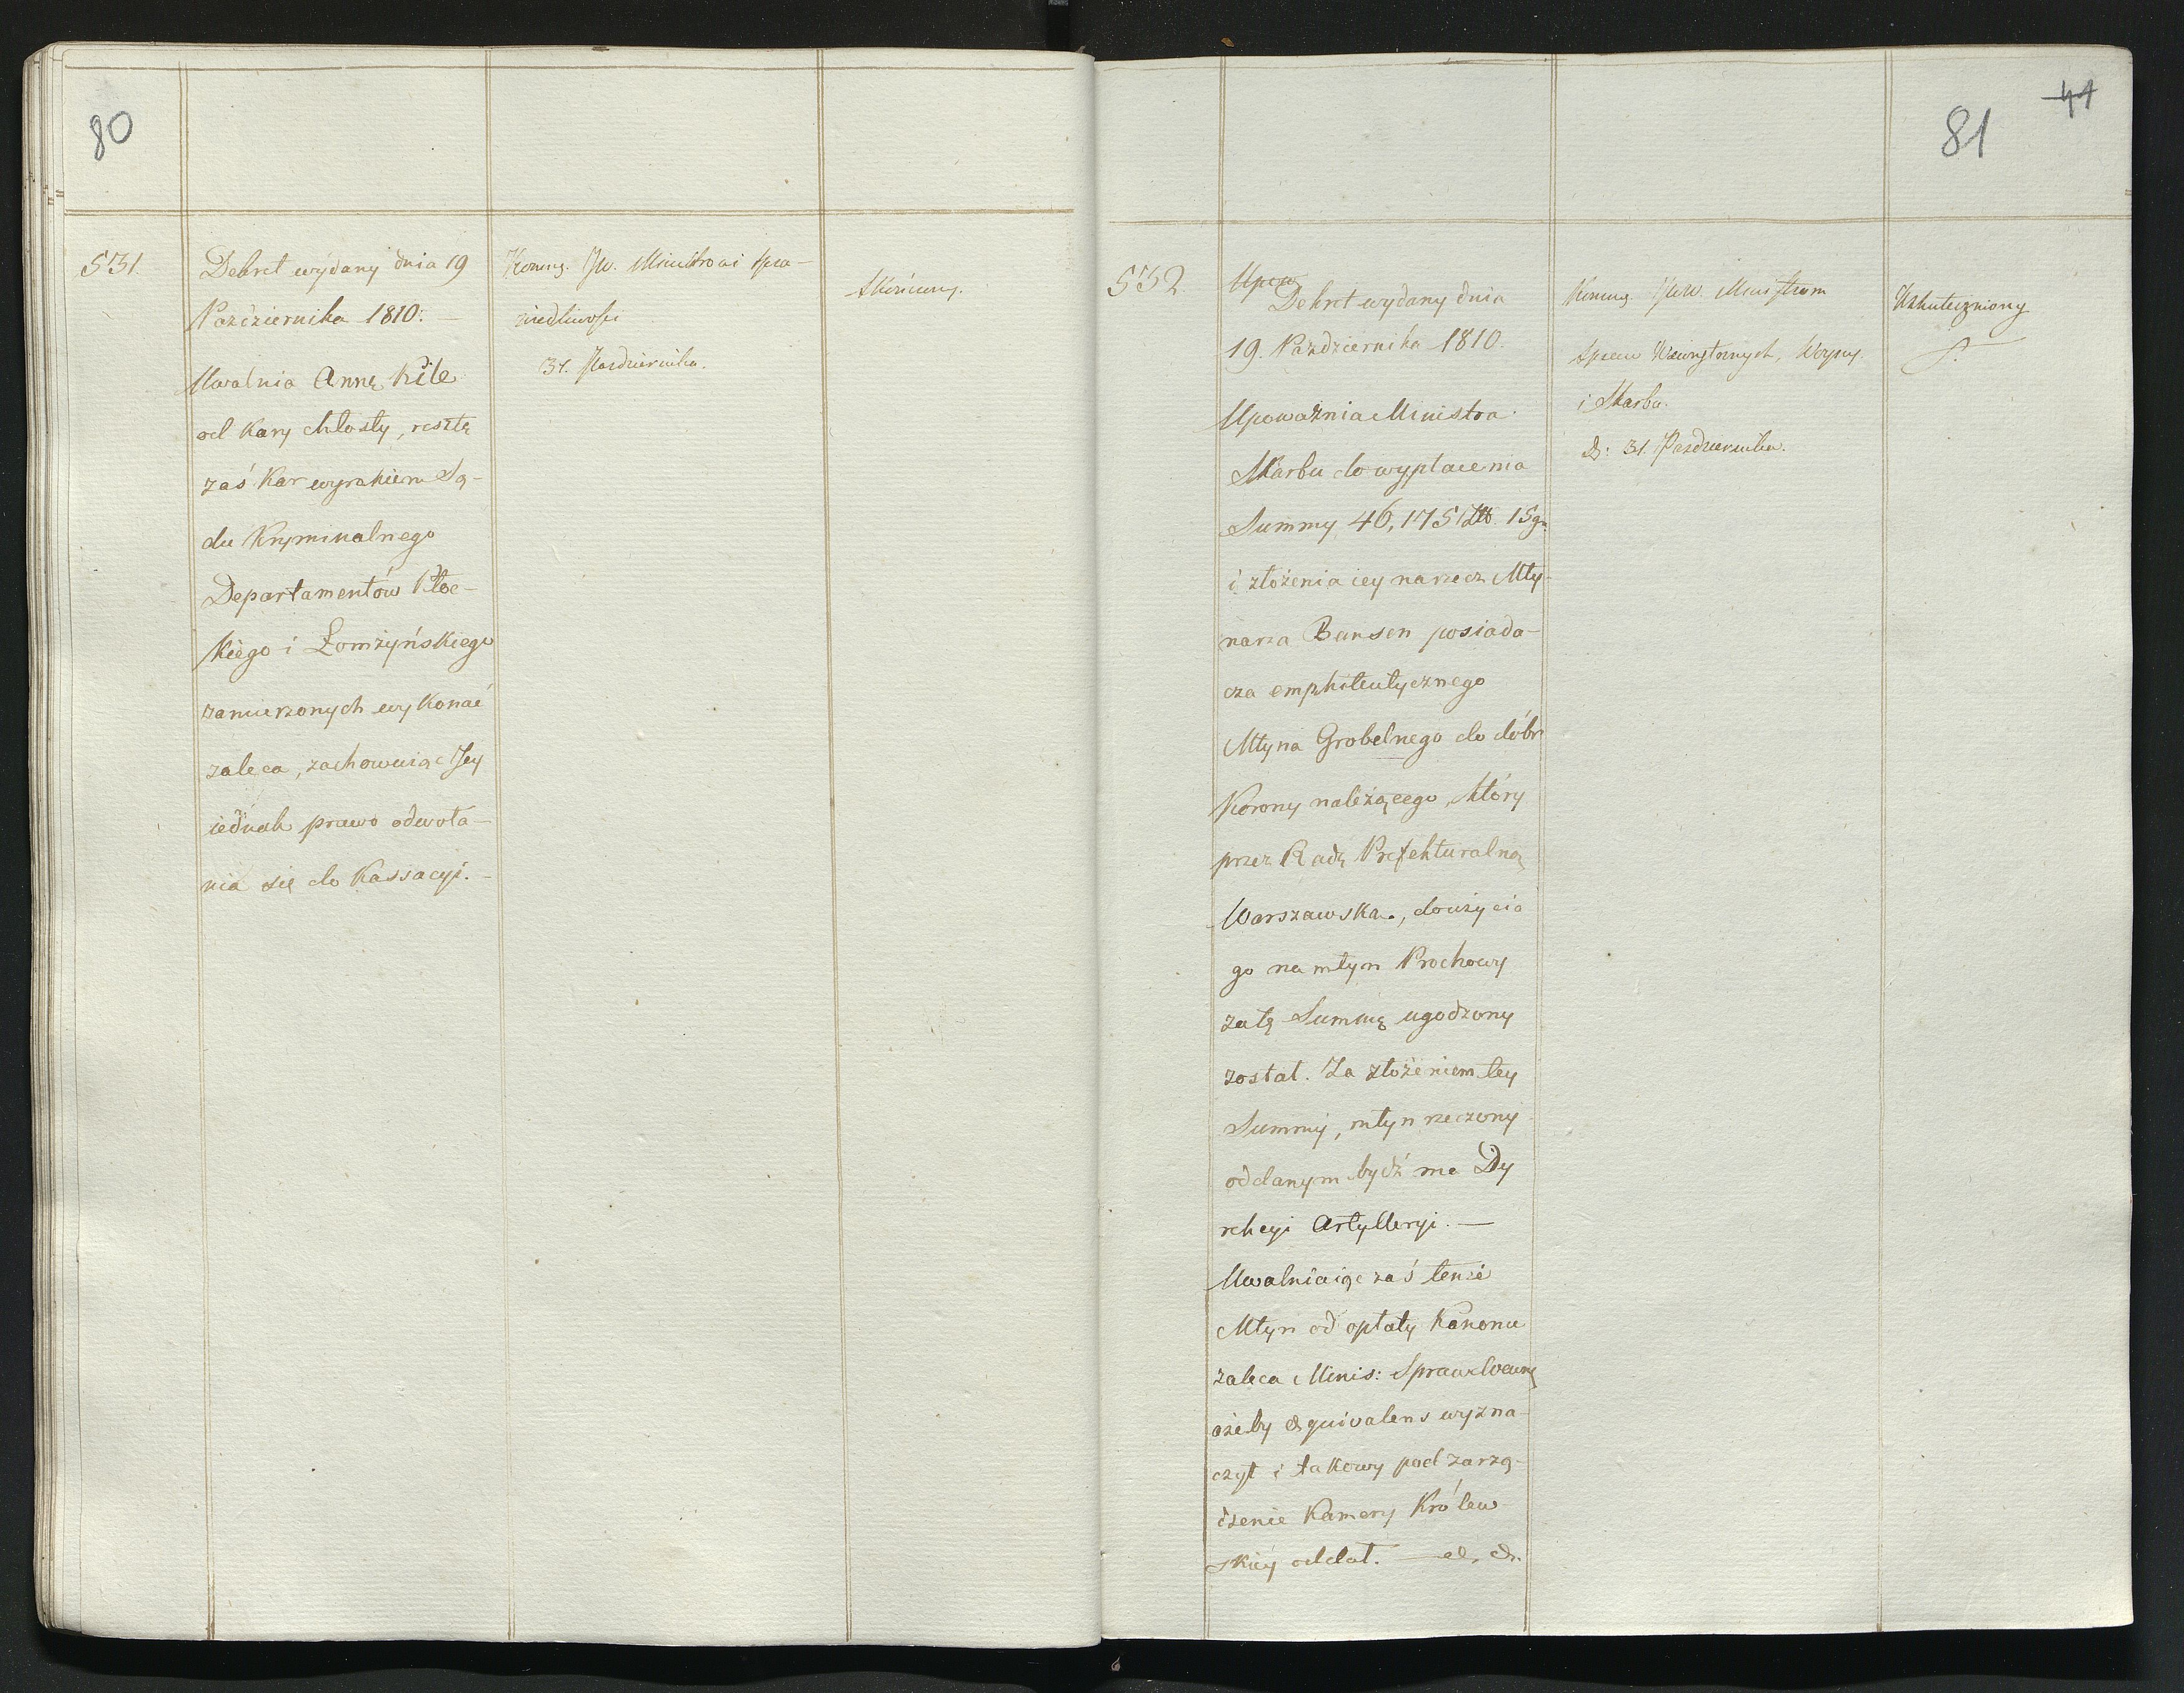 80
531.
Dekret wydany dnia 19
Października 1810. —
Uwalnia Annę Kile
od Kary chłosty, resztę
zaś Kar wyrokiem Są-
du Kryminalnego
Departamentów Płoc-
kiego i Łomżyńskiego
zamierzonych wykonać
zaleca, zachowuiąc Jey
iednak prawo odwoła-
nia się do Kassacyi. —
Komuq. JW. Ministrowi spra-
wiedliwości
31. Października.
Skończony.
41
81
532.
Upow
Dekret wydany dnia
19. Października 1810.
Upoważnia Ministra
Skarbu do wypłacenia
Summy 46,175 Złł. 15 gr.
i złożenia iey na rzecz Mły-
narza Bansen posiada-
cza emphiteutycznego
Młyna Grobelnego do dóbr
Korony należącego, który
przez Radę Prefekturalną
Warszawską, do użycia
go na młyn Prochowy
za tę Summę ugodzony
został. Za złożeniem tey
Summy, młyn rzeczony
oddanym bydź ma Dy
rekcyi Artylleryi. —
Uwalniaiąc zaś tenże
Młyn od opłaty Kanonu
zaleca Minis: Spraw Wewnę
ażeby Equivalens wyzna-
czył i takowy pod zarzą-
dzenie Kamery Królew
skiey oddał. —
Komuq. JWW. Ministrom
Spraw Wewnętrznych, Woyny
i Skarbu.
D: 31. Października.
Uskuteczniony